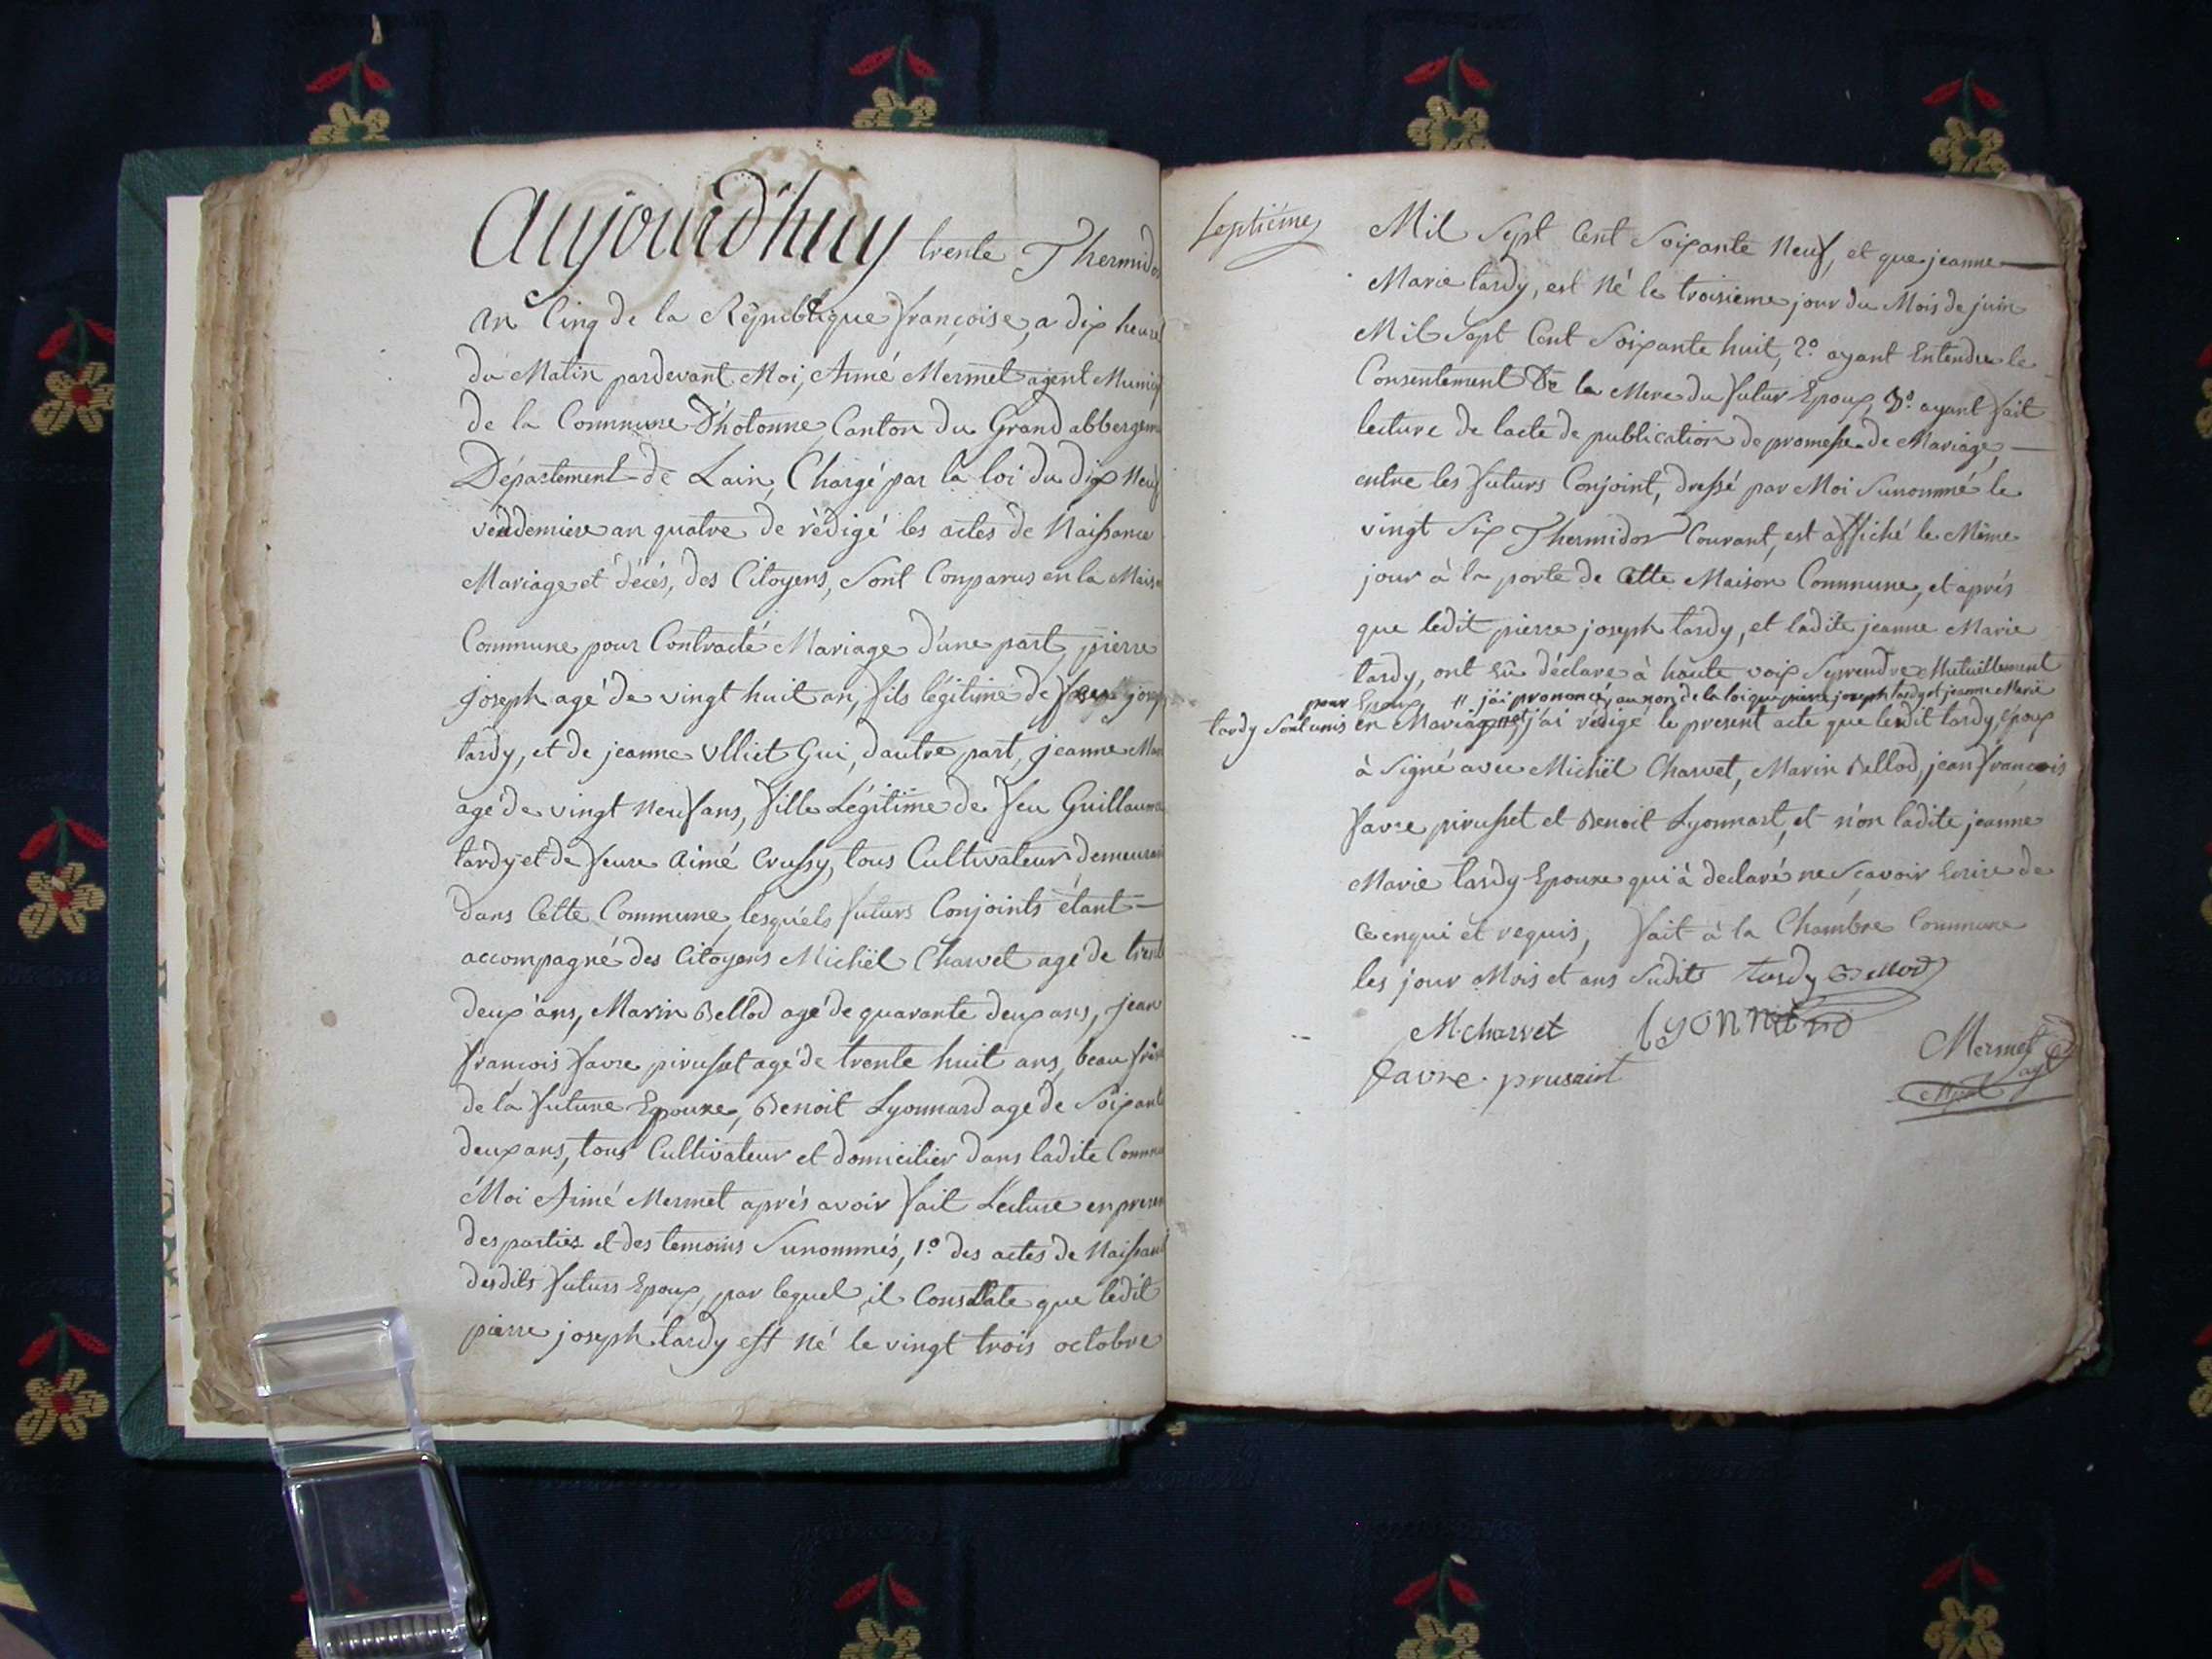 Aujourd'huy trente Thermidor
an Cinq de la République françoise, a dix heures
du Matin pardevant Moi, Aimé Mermet agent Municip
de la Commune D'hotonne Canton du Grand abbergem
Département de Lain, Chargé par la loi du dix Neuf
vendemiere an quatre de rédigé les actes de Naissance
Mariage et décés, des Citoyens, Sont Conparus en la Maison
Commune pour Contracté Mariage d'une part, pierre
joseph agé de vingt huit an, fils légitime de feu joseph
tardy, et de jeanne Ulliet Gui, dautre part, jeanne Mari
agé de vingt Neuf ans, fille Légitime de feu Guillaume
tardy et de feure aimé Crussy, tous Cultivateur demeuran
dans Cette Commune, lesquéls futurs Conjoints étant —
accompagné des Citoyens Michël Charvet agé de trente
deux ans, Marin Bellod agé de quarante deux ans, jean
françois favre pirusset agé de trente huit ans, beau frere
de la future Epouxe, Benoit Lyonnard agé de Soixante
deux ans, tous Cultivateur et domicilier dans ladite Commun
Moi Aimé Mermet aprés avoir fait Lecture en presen
des parties et des temoins Sunommés, 1.º des actes de Naissance
desdits futurs Epoux, par lequel il Constate que ledit
pierre joseph tardy est Né le vingt trois octobre
Septiéme
Mil Sept Cent Soixante Neuf, et que jeanne —
Marie tardy, est Né le troisieme jour du Mois de juin
Mil Sept Cent Soixante huit, 2.º ayant Entendu le
Consentement De la Mere du futur Epoux, 3.º ayant fait
lecture de lacte de publication de promesse de Mariage, —
entre les futurs Conjoint, dressé par Moi Sunommé le
vingt Six Thermidor Courant, est affiché le Même
jour à la porte de Cette Maison Commune, et aprés
que ledit pierre joseph tardy, et ladite jeanne Marie
tardy, ont déclare à haute voix Se prendre Mutuellement
pour Epoux, // j'ai prononcé, au non de la loi que pierre joseph tardy et jeanne Marie
tardy Sont unis en Mariage // et j'ai rédigé le present acte que ledit tardy, Epoux
à Signé avec Michël Charvet, Marin Bellod, jean françois
favre pirusset et Benoit Lyonnart, et n'on ladite jeanne
Marie tardy Epouxe qui à declaré ne Sçavoir Ecrire de
ce enqui et requis, fait à la Chambre Commune
les jour Mois et ans Sudits tardy Bellod
M. charvet Lyonnard
Mermet
favre. prusait agt
Mpal